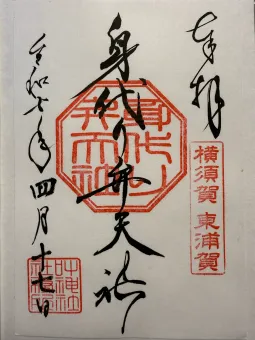 奉拝
横須賀 東浦賀
身代り弁天社
身代り弁天社
令和七年四月十七日
叶神社